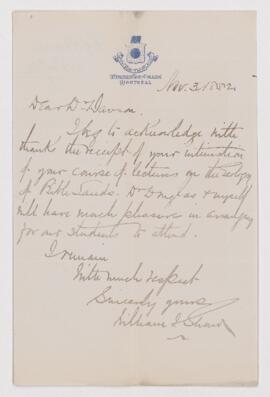 MONTREAL
Nov. 3, 1882
Dear Dr Dawson,
I beg to acknowledge with
thanks the receipt of your intimation
of your course of lectures on the Geology
of Bible Lands. Dr Douglas & myself
will have much pleasure in arranging
for our students to attend.
I remain
With much respect
Sincerely yours
William I Shaw